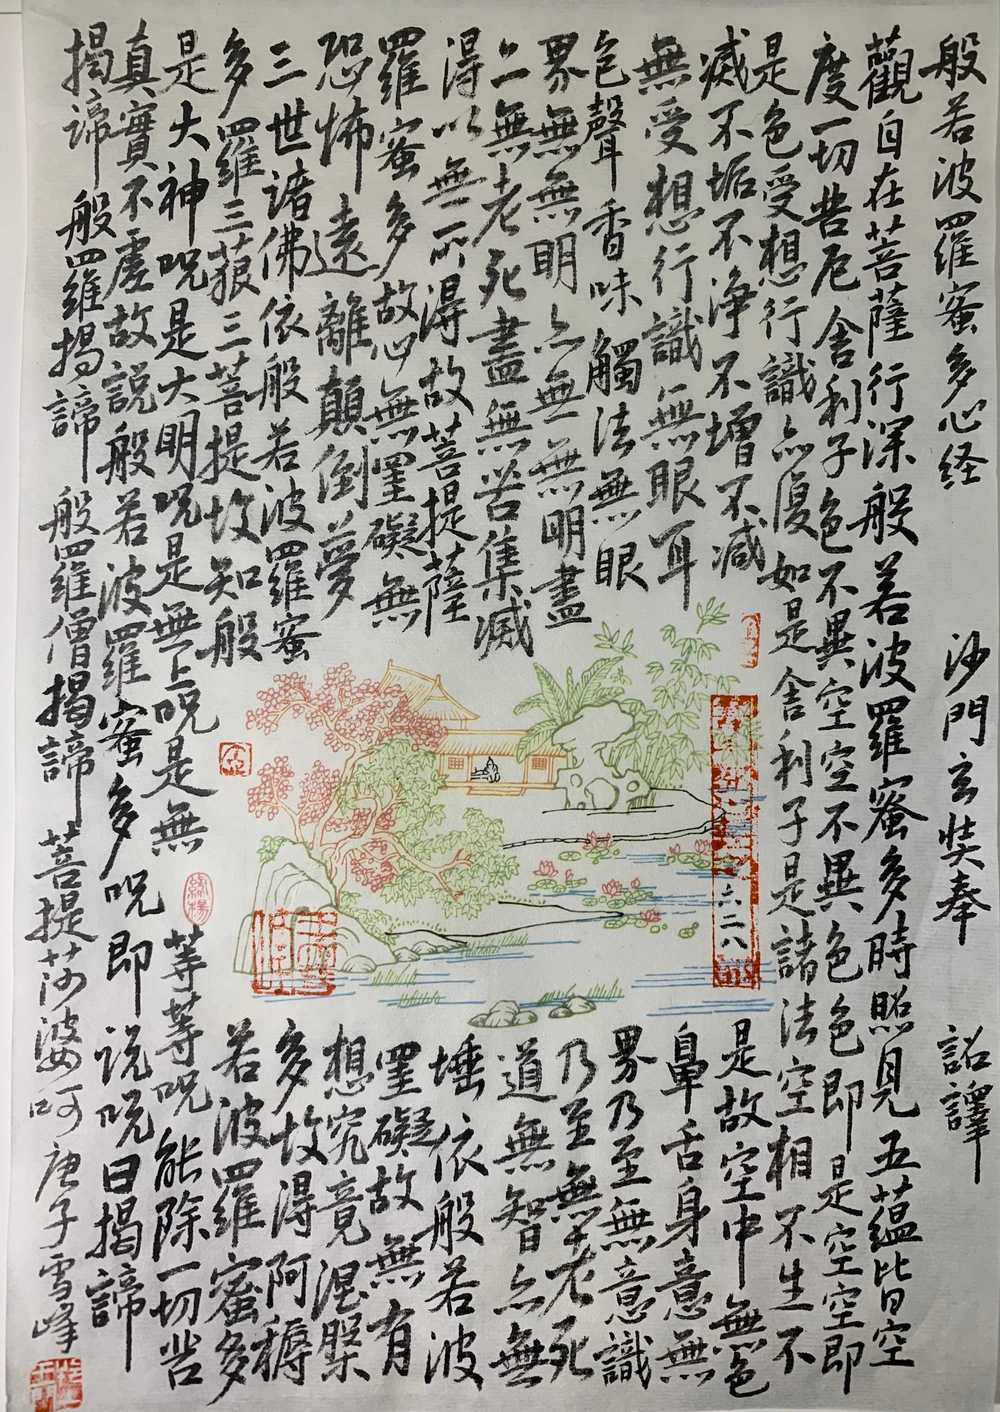 般若波羅蜜多心经 沙門玄奘奉 詔譯
觀自在菩薩行深般若波羅蜜多時照見五蘊皆空
度一切苦厄舍利子色不異空空不異色色即是空空即
是色受想行識亦復如是舍利子是諸法空相不生不
滅不垢不淨不增不减 是故空中無色
無受想行識無眼耳 鼻舌身意無
色聲香味觸法無眼 界乃至無意識
界無無明亦無無明盡 乃至無老死
亦無老死盡無苦集滅 道無智亦無
得以無所得故菩提薩 埵依般若波
羅蜜多故心無罣礙無 罣礙故無有
恐怖遠離顛倒夢 想究竟涅槃
三世諸佛依般若波羅蜜 多故得阿耨
多羅三藐三菩提故知般 若波羅蜜多
是大神咒是大明咒是無上咒是無 等等咒能除一切苦
真實不虛故説般若波羅蜜多咒即说咒曰揭諦
揭諦般羅揭諦般羅僧揭諦菩提莎婆呵 庚子雪峰
六二八